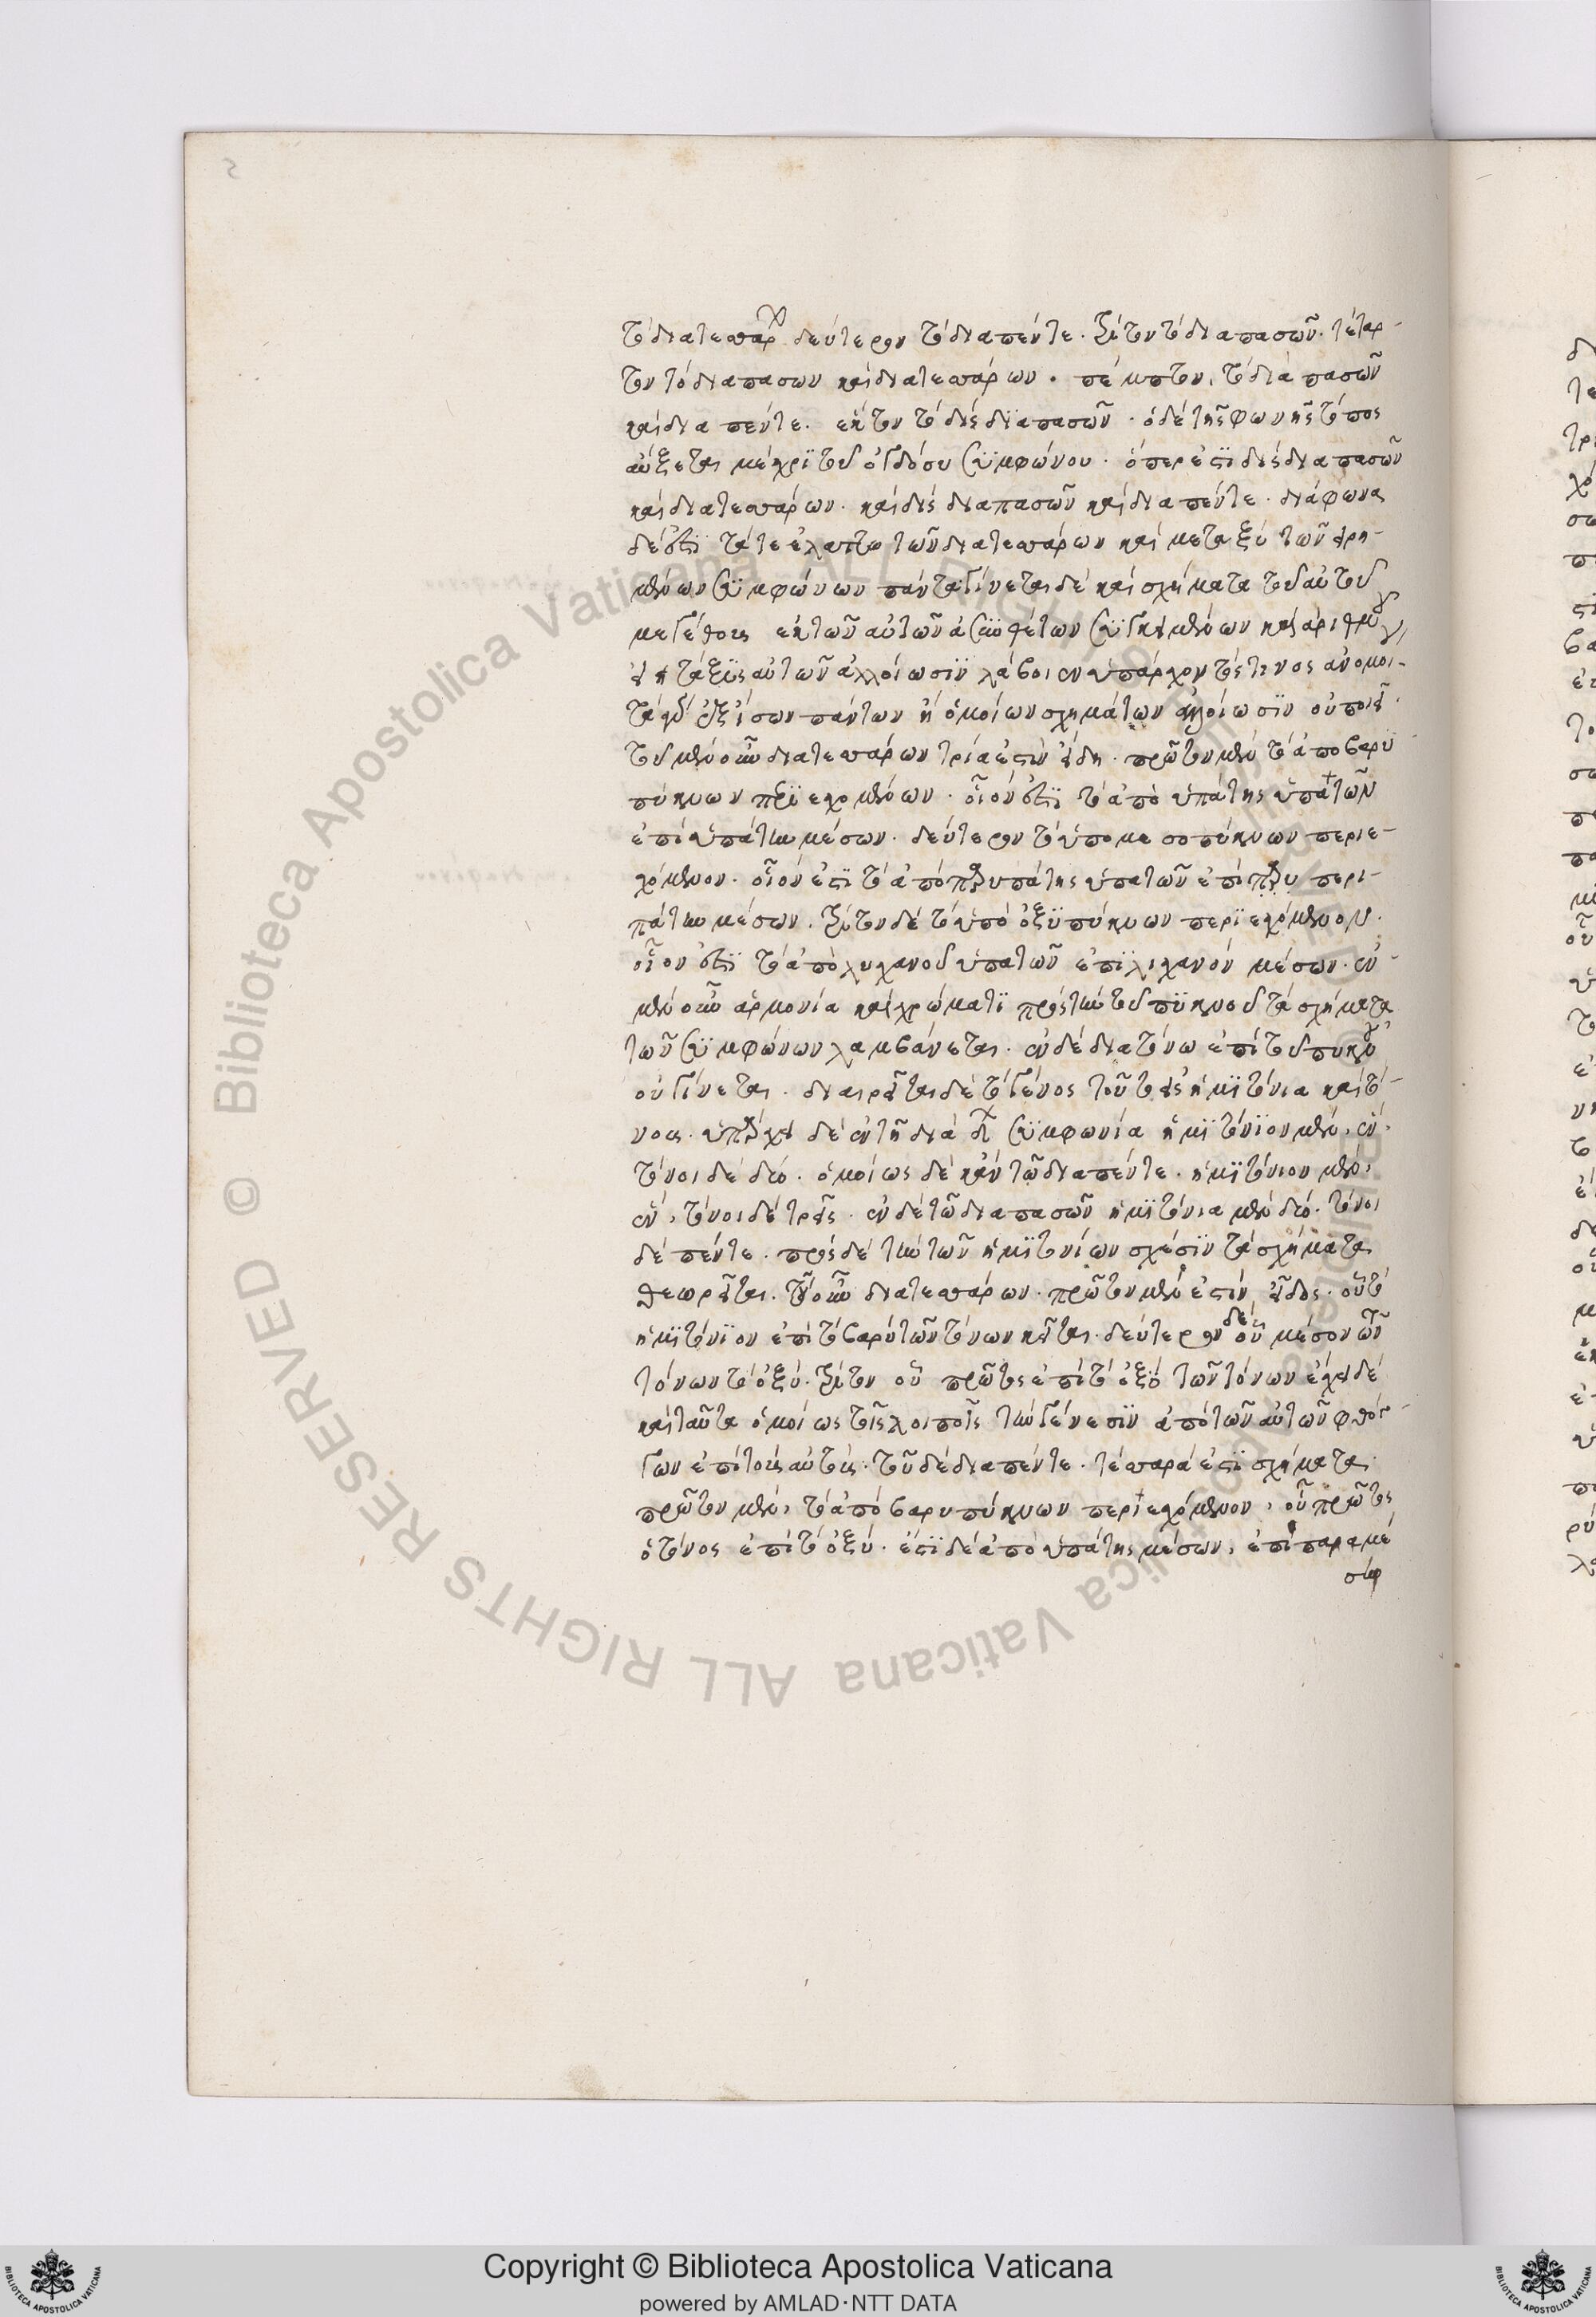 τὸ διατεσσάρων δεύτερον τὸ διαπέντε. τρίτον τὸ διαπασῶν. τέταρ-
τον τὸ διαπασων καὶ διατεσσάρων. πέμπτον, τὸ διὰ πασῶν
καὶ δια πέντε. ἕκτον τὸ δὶς διαπασῶν. ὁ δὲ τῆς φωνῆς τόπος
αὔξεται μέχρι τοῦ ὀγδόου συμφώνου. ὅπερ ἐστὶ δὶς δια πασῶν
καὶ διατεσσάρων. καὶ δὶς διαπασῶν καὶ δια πέντε. διάφωνα
δέ ἐστι τά τε ἐλάττω τῶν διατεσσάρων καὶ μεταξὺ τῶν εἰρη-
μένων συμφώνων πάντα γίνεται δὲ καὶ σχήματα τοῦ αὐτοῦ
μεγέθους ἐκ τῶν αὐτῶν ἀσυνθέτων συγκειμένων καὶ ἀριθμοῦ
εἰ ἡ τάξις αὐτῶν ἀλλοίωσιν λάβοι ἐνυπάρχοντός τινος ἀνομοί-
τὰ γὰρ ἐξ ἴσων πάντων ἢ ὁμοίων σχημάτων ἀλλοίωσιν οὐ ποιεῖ.
τοῦ μὲν οὖν διατεσσάρων τρία ἐστὶν εἴδη. πρῶτον μὲν τὸ ἀπο βαρυ
πύκνων περιεχομένων. οἷόν ἐστι τὸ ἀπὸ ὑπάτης ὑπατῶν
ἐπὶ ὑπάτην μέσων. δεύτερον τὸ ὑπο μεσοπύκνων περιε-
χόμενον. οἷον ἐστὶ τὸ ἀπὸ παρυπάτης ὑπατῶν ἐπὶ παρυ περι-
πάτην μέσων. τρίτον δὲ τὸ ὑπὸ ὀξυπύκνων περιεχόμενον.
οἷον ἐστι τὸ ἀπὸ λιχανοῦ ὑπατῶν ἐπὶ λιχανὸν μέσων. ἐν
μὲν οὖν ἁρμονία καὶ χρώματι πρὸς τὴν τοῦ πυκνοῦ τὰ σχήματα
τῶν συμφώνων λαμβάνεται. ἐν δὲ διατόνω ἐπὶ τοῦ πυκνοῦ
οὐ γίνεται. διαιρεῖται δὲ τὸ γένος τοῦτο εἰς ἡμιτόνια καὶ τό-
νους. ὑπάρχει δὲ ἐν τῇ διὰ δ συμφωνία ἡμιτόνιον μὲν, ἕν,
τόνοι δὲ δύο. ὁμοίως δὲ κἀν τῶ διαπέντε. ἡμιτόνιον μὲν,
ἕν, τόνοι δὲ τρεῖς. ἐν δὲ τῶ διαπασῶν ἡμιτόνια μὲν δύο. τόνοι
δὲ πέντε. πρὸς δὲ τὴν τῶν ἡμιτονίων σχέσιν τὰ σχήματα
θεωρεῖται. τοῦ οὖν διατεσσάρων. πρῶτον μὲν ἐστὶν εἶδος. οὗ τὸ
ἡμιτόνιον ἐπὶ τὸ βαρὺ τῶν τόνων κεῖται. δεύτερον δὲ οὗ μέσον τῶν
τόνων τὸ ὀξύ. τρίτον οὗ πρῶτος ἐπὶ τὸ ὀξὺ τῶν τόνων ἔχει δὲ
καὶ ταῦτα ὁμοίως τοῖς λοιποῖς τὴν γένεσιν ἀπὸ τῶν αὐτῶν φθόγ-
γων ἐπὶ τοὺς αὐτούς. τοῦ δὲ διαπέντε. τέσσαρά ἐστὶ σχήματα
πρῶτον μὲν, τὸ ἀπὸ βαρυπύκνων περιεχόμενον, οὗ πρῶτος
ὁ τόνος ἐπὶ τὸ ὀξύ. ἐστὶ δὲ ἀπὸ ὑπάτης μέσων, ἐπὶ παραμέ
σην
Copyright © Biblioteca Apostolica Vaticana
powered by AMLAD·NTT DATA
© Biblioteca Apostolica Vaticana ALL RIGHTS RESERVED